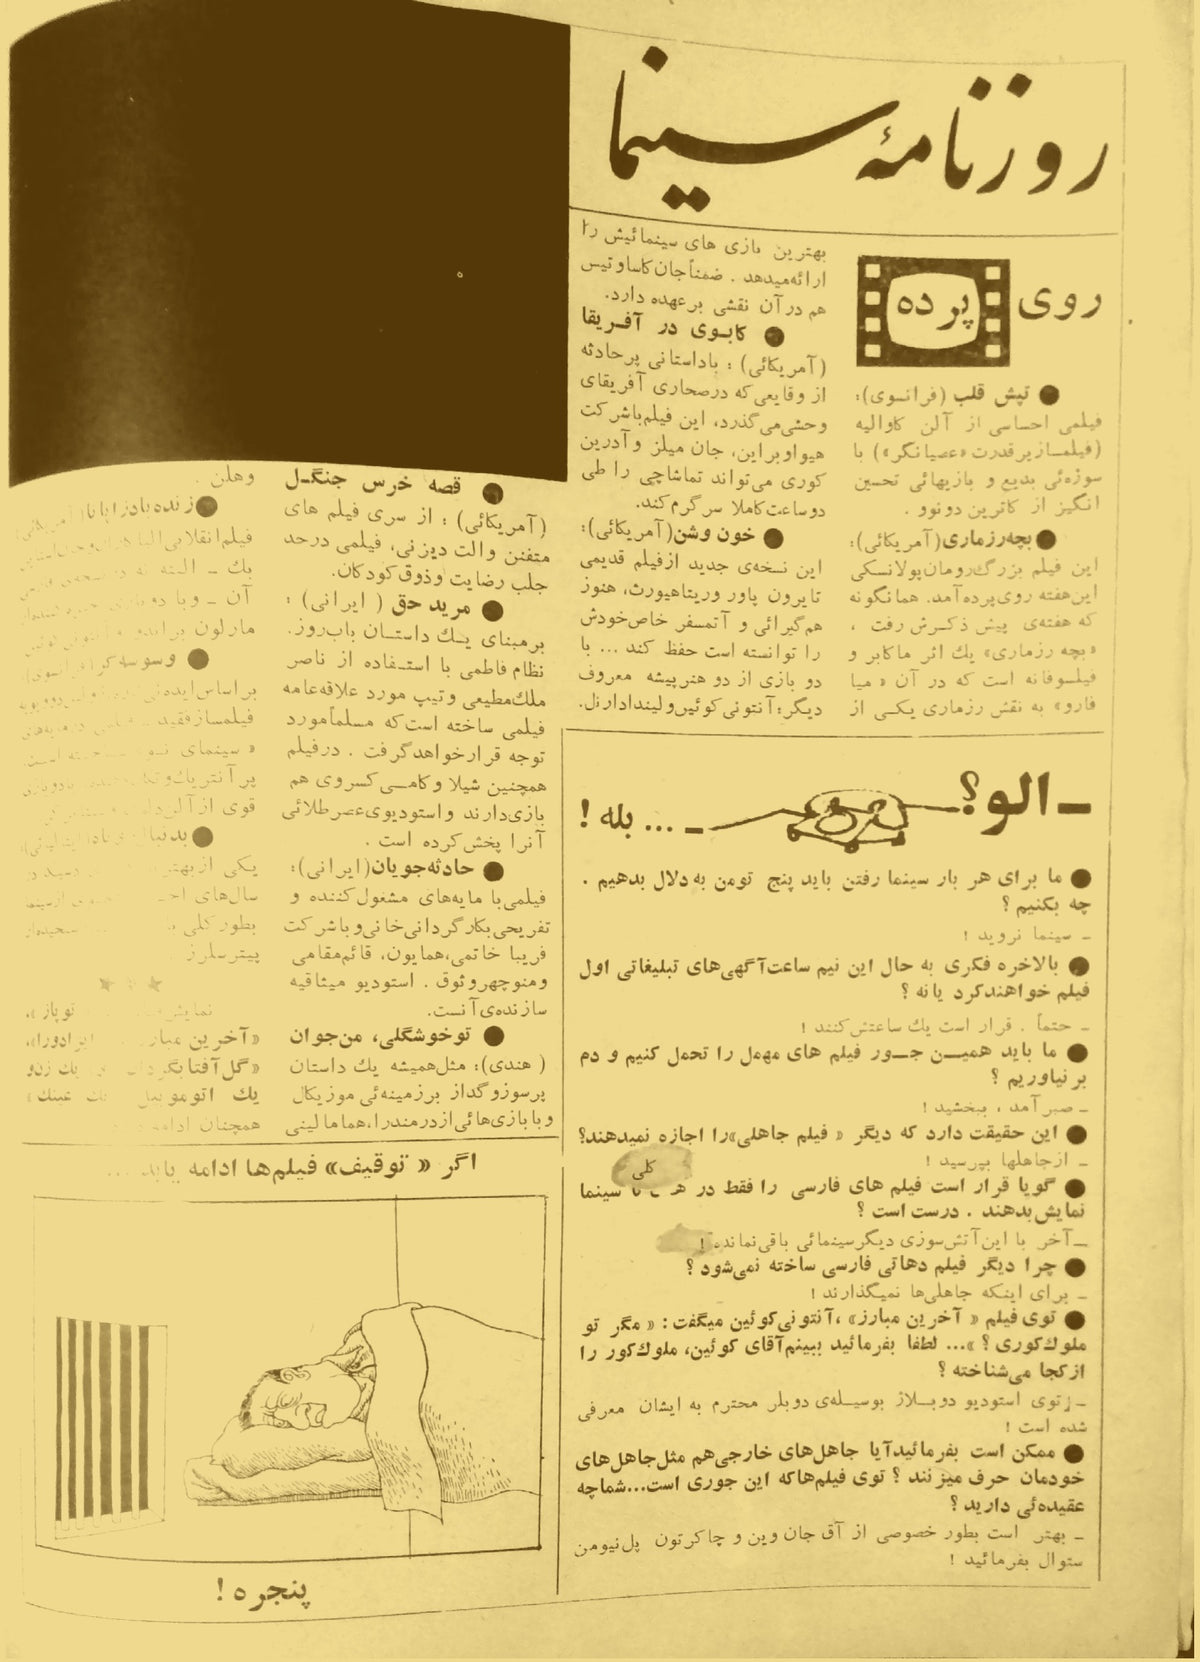 روزنامهٔ سینما
روی پرده
● تپش قلب (فرانسوی):
فیلمی احساسی از آلن کاوالیه
(فیلمساز پرقدرت «عصیانگر») با
سوژه‌ئی بدیع و بازیهائی تحسین
انگیز از کاترین دونوو .
● بچه رزماری (آمریکائی):
این فیلم بزرگ رومان پولانسکی
این هفته روی پرده آمد. همانگونه
که هفته‌ی پیش ذکرش رفت ،
«بچه رزماری» یك اثر ماکابر و
فیلسوفانه است که در آن « میا
فارو» به نقش رزماری یکی از
بهترین بازی های سینمائیش را
ارائه میدهد . ضمناً جان کاساوتیس
هم در آن نقشی برعهده دارد.
● کابوی در آفریقا
(آمریکائی) : با داستانی پرحادثه
از وقایعی که درصحاری آفریقای
وحشی می‌گذرد، این فیلم باشرکت
هیو اوبراین، جان میلز و آدرین
کوری می‌تواند تماشاچی را طی
دوساعت کاملا سرگرم کند.
● خون و شن (آمریکائی):
این نسخه‌ی جدید ازفیلم قدیمی
تایرون پاور وریتاهیورث، هنوز
هم گیرائی و آتمسفر خاص خودش
را توانسته است حفظ کند ... با
دو بازی از دو هنرپیشه معروف
دیگر: آنتونی کوئین و لیندا دارنل.
● قصه خرس جنگل
(آمریکائی) : از سری فیلم های
متفنن والت دیزنی، فیلمی درحد
جلب رضایت و ذوق کودکان.
● مرید حق ( ایرانی) :
برمبنای یك داستان باب روز.
نظام فاطمی با استفاده از ناصر
ملك مطیعی وتیپ مورد علاقه عامه
فیلمی ساخته است که مسلماً مورد
توجه قرار خواهد گرفت . درفیلم
همچنین شیلا و کامی کسروی هم
بازی دارند و استودیوی عصرطلائی
آنرا پخش کرده است .
● حادثه جویان (ایرانی):
فیلمی با مایه‌های مشغول کننده و
تفریحی بکارگردانی خانی و باشرکت
فریبا خاتمی، همایون، قائم مقامی
ومنوچهر وثوق . استودیو میثاقیه
سازنده‌ی آنست.
● تو خوشگلی، من جوان
( هندی): مثل همیشه یك داستان
پرسوز و گداز بر زمینه‌ئی موزیکال
و با بازی‌هائی از درمندرا، هما مالینی
وهلن .
● زنده باد زاپاتا
فیلم انقلابی الیا کازان
یك ـ البته نه
آن ـ و با دو
مارلون براندو
● وسوسه‌گر
براساس ایده‌ئی
فیلمساز فقید
« سینمای نو»
پر آنتریك و تک
قوی از آلن
● بدنبال
یکی از بهتر
سال‌های
بطور کلی
پیتر سلرز .
نمایش « توپاز »،
«آخرین مبارز
«گل آفتابگردان یك زن و
یك اتوموبیل یك عینك »
همچنان ادامه
ـ الو؟
ـ ... بله !
● ما برای هر بار سینما رفتن باید پنج تومن به دلال بدهیم .
چه بکنیم ؟
ـ سینما نروید !
● بالاخره فکری به حال این نیم ساعت آگهی‌های تبلیغاتی اول
فیلم خواهند کرد یا نه ؟
ـ حتماً . قرار است یك ساعتش کنند !
● ما باید همین جور فیلم های مهمل را تحمل کنیم و دم
برنیاوریم ؟
ـ صبر آمد ، ببخشید !
● این حقیقت دارد که دیگر « فیلم جاهلی» را اجازه نمیدهند؟
ـ از جاهلها بپرسید !
کلی
● گویا قرار است فیلم های فارسی را فقط در سینما
نمایش بدهند . درست است ؟
ـ آخر با این آتش سوزی دیگر سینمائی باقی نمانده !
● چرا دیگر فیلم دهاتی فارسی ساخته نمی‌شود ؟
ـ برای اینکه جاهلی‌ها نمیگذارند !
● توی فیلم « آخرین مبارز» ، آنتونی کوئین میگفت : « مگر تو
ملوك کوری ؟ »... لطفا بفرمائید ببینم آقای کوئین، ملوك کور را
از کجا می‌شناخته ؟
ـ توی استودیو دوبلاژ بوسیله‌ی دوبلر محترم به ایشان معرفی
شده است !
● ممکن است بفرمائید آیا جاهل‌های خارجی هم مثل جاهل‌های
خودمان حرف میزنند ؟ توی فیلم‌ها که این جوری است... شما چه
عقیده‌ئی دارید ؟
ـ بهتر است بطور خصوصی از آق جان وین و چاکرتون پل نیومن
سئوال بفرمائید !
اگر « توقیف» فیلم‌ها ادامه یابد ...
پنجره !